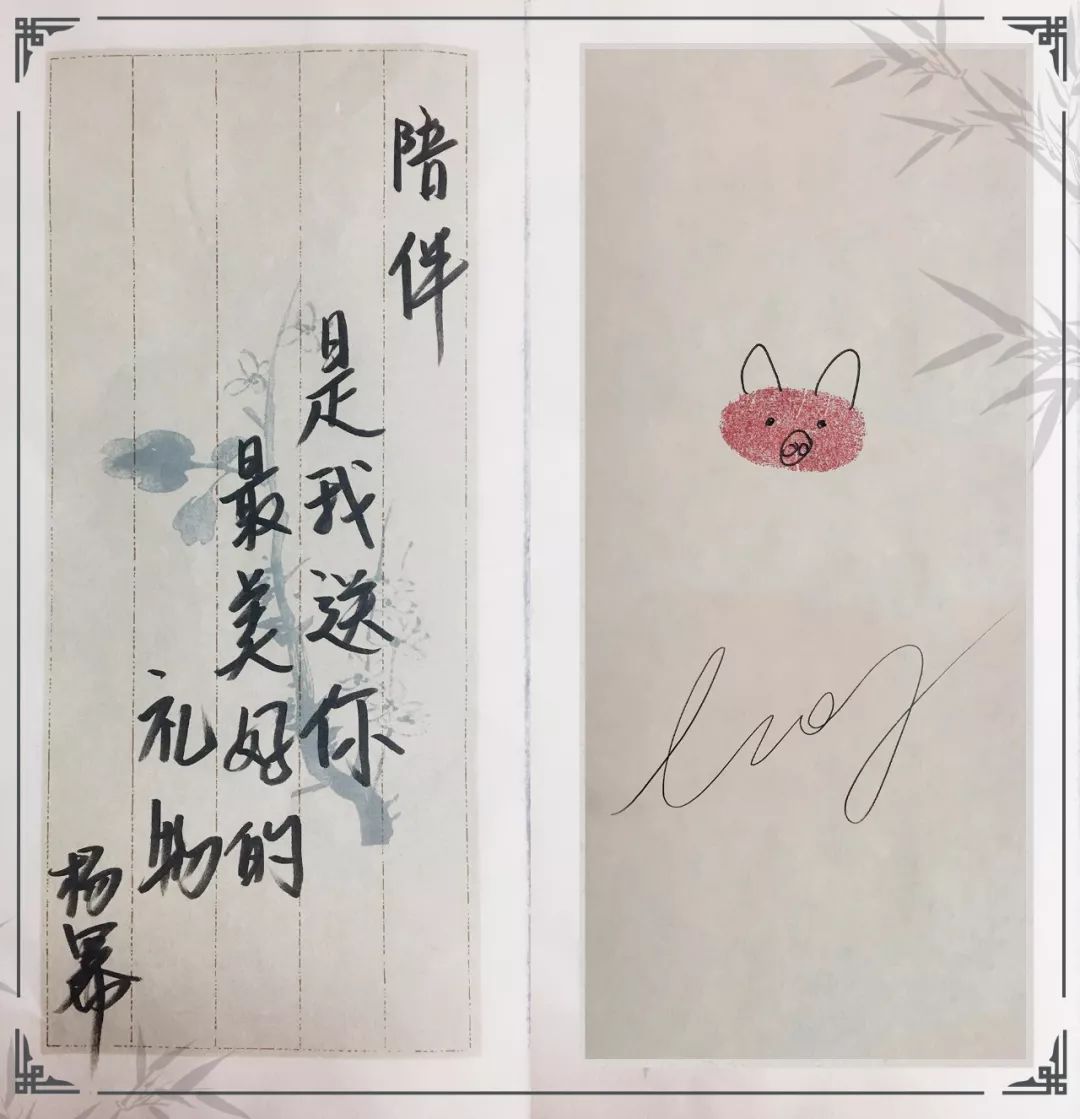 陪伴
是我送你
最美好的
礼物
杨幂